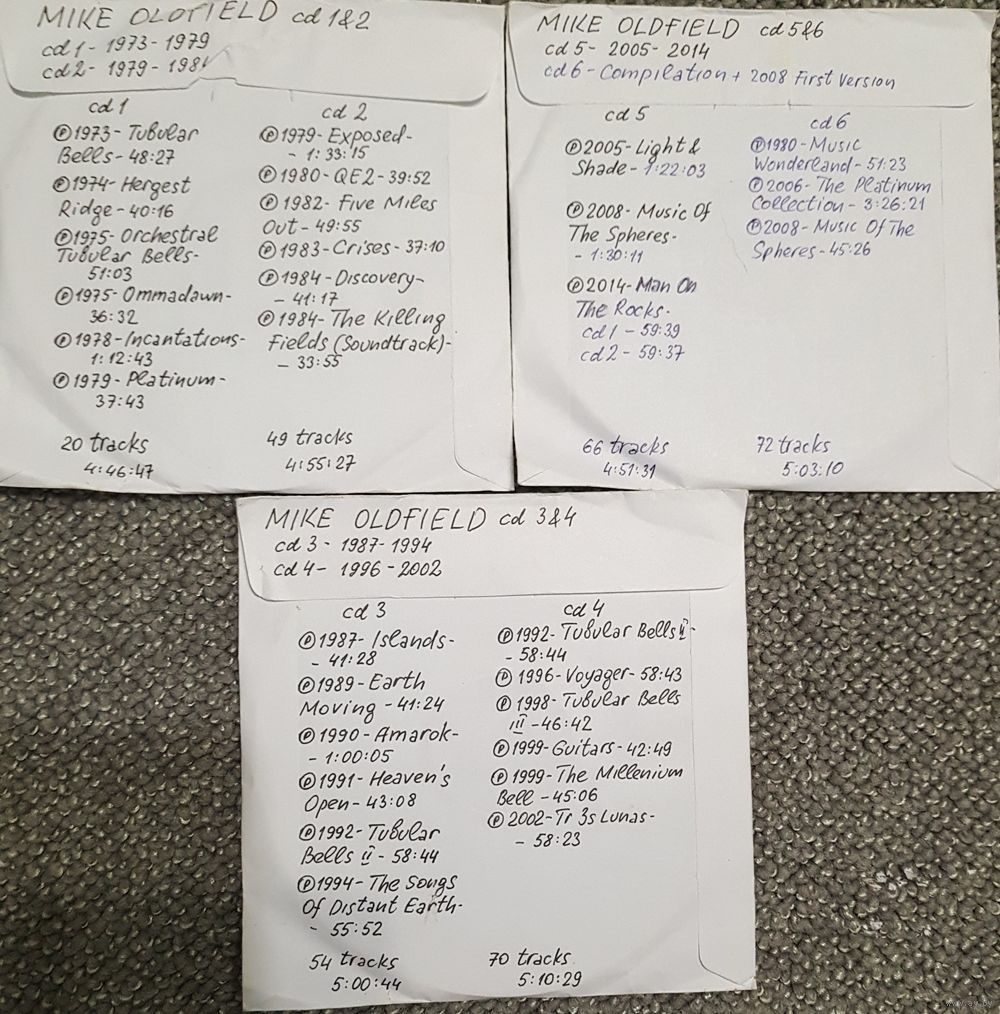 MIKE OLDFIELD cd 1&2
cd 1 - 1973 - 1979
cd 2 - 1979 - 1984
cd 1
Ⓟ1973 - Tubular
Bells - 48:27
Ⓟ1974 - Hergest
Ridge - 40:16
Ⓟ1975 - Orchestral
Tubular Bells -
51:03
Ⓟ1975 - Ommadawn -
36:32
Ⓟ1978 - Incantations -
1:12:43
Ⓟ1979 - Platinum -
37:43
20 tracks
4:46:47
cd 2
Ⓟ1979 - Exposed -
- 1:33:15
Ⓟ1980 - QE2 - 39:52
Ⓟ1982 - Five Miles
Out - 49:55
Ⓟ1983 - Crises - 37:10
Ⓟ1984 - Discovery -
- 41:17
Ⓟ1984 - The Killing
Fields (Soundtrack) -
- 33:55
49 tracks
4:55:27
MIKE OLDFIELD cd 5&6
cd 5 - 2005 - 2014
cd 6 - Compilation + 2008 First Version
cd 5
Ⓟ2005 - Light &
Shade - 1:22:03
Ⓟ2008 - Music Of
The Spheres -
- 1:30:11
Ⓟ2014 - Man On
The Rocks -
cd 1 - 59:39
cd 2 - 59:37
66 tracks
4:51:31
cd 6
Ⓟ1980 - Music
Wonderland - 51:23
Ⓟ2006 - The Platinum
Collection - 3:26:21
Ⓟ2008 - Music Of The
Spheres - 45:26
72 tracks
5:03:10
MIKE OLDFIELD cd 3&4
cd 3 - 1987 - 1994
cd 4 - 1996 - 2002
cd 3
Ⓟ1987 - Islands -
- 41:28
Ⓟ1989 - Earth
Moving - 41:24
Ⓟ1990 - Amarok -
- 1:00:05
Ⓟ1991 - Heaven's
Open - 43:08
Ⓟ1992 - Tubular
Bells II - 58:44
Ⓟ1994 - The Songs
Of Distant Earth -
- 55:52
54 tracks
5:00:44
cd 4
Ⓟ1992 - Tubular Bells II -
- 58:44
Ⓟ1996 - Voyager - 58:43
Ⓟ1998 - Tubular Bells
III - 46:42
Ⓟ1999 - Guitars - 42:49
Ⓟ1999 - The Millenium
Bell - 45:06
Ⓟ2002 - Tr3s Lunas -
- 58:23
70 tracks
5:10:29